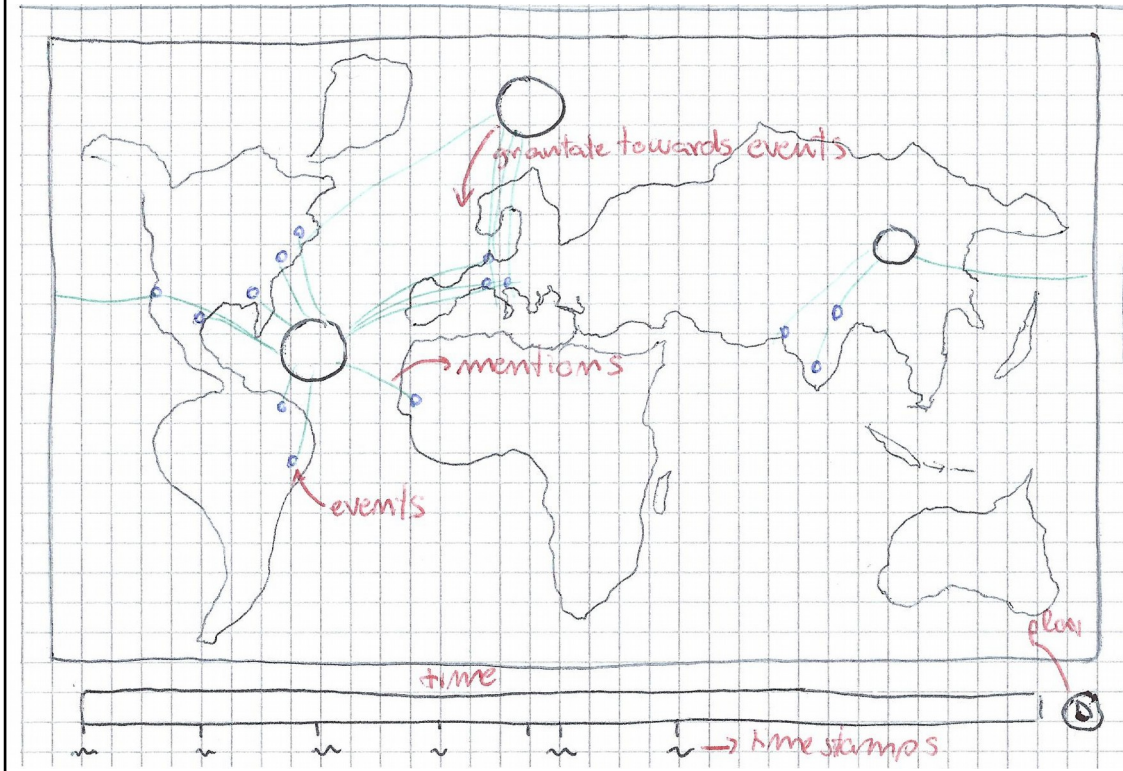 grantate towards events
mentions
events
play
time
timestamps